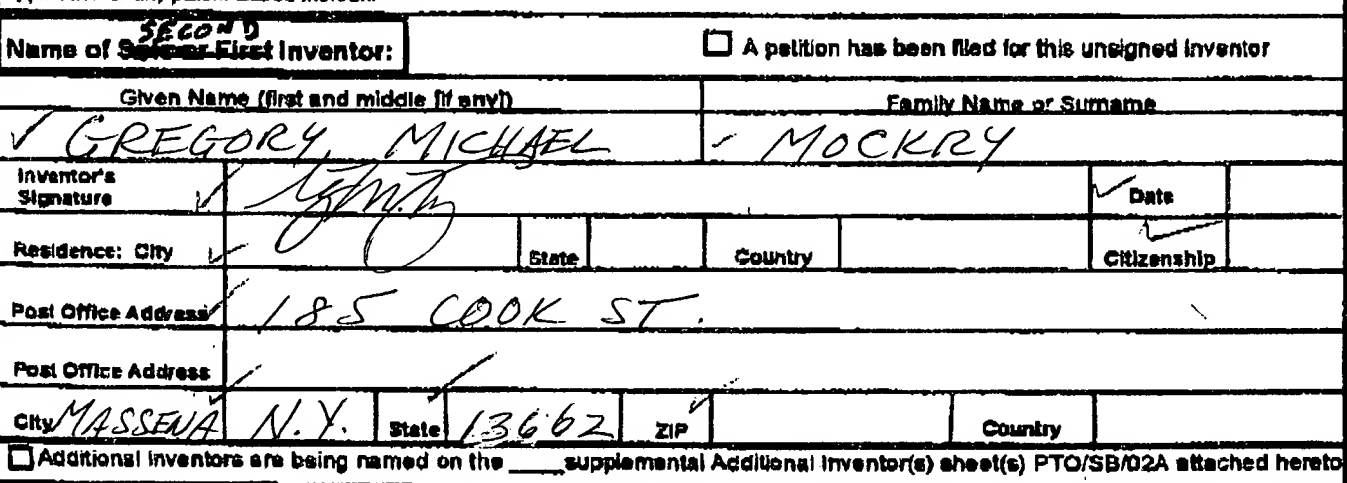 SECOND
Name of Sole or First Inventor: A petition has been filed for this unsigned inventor
Given Name (first and middle [if any]) Family Name or Surname
GREGORY, MICHAEL MOCKRY
Inventor's Signature Date
Residence: City State Country Citizenship
Post Office Address 185 COOK ST.
Post Office Address
City MASSENA N.Y. State 13662 ZIP Country
Additional inventors are being named on the ____supplemental Additional Inventor(s) sheet(s) PTO/SB/02A attached hereto